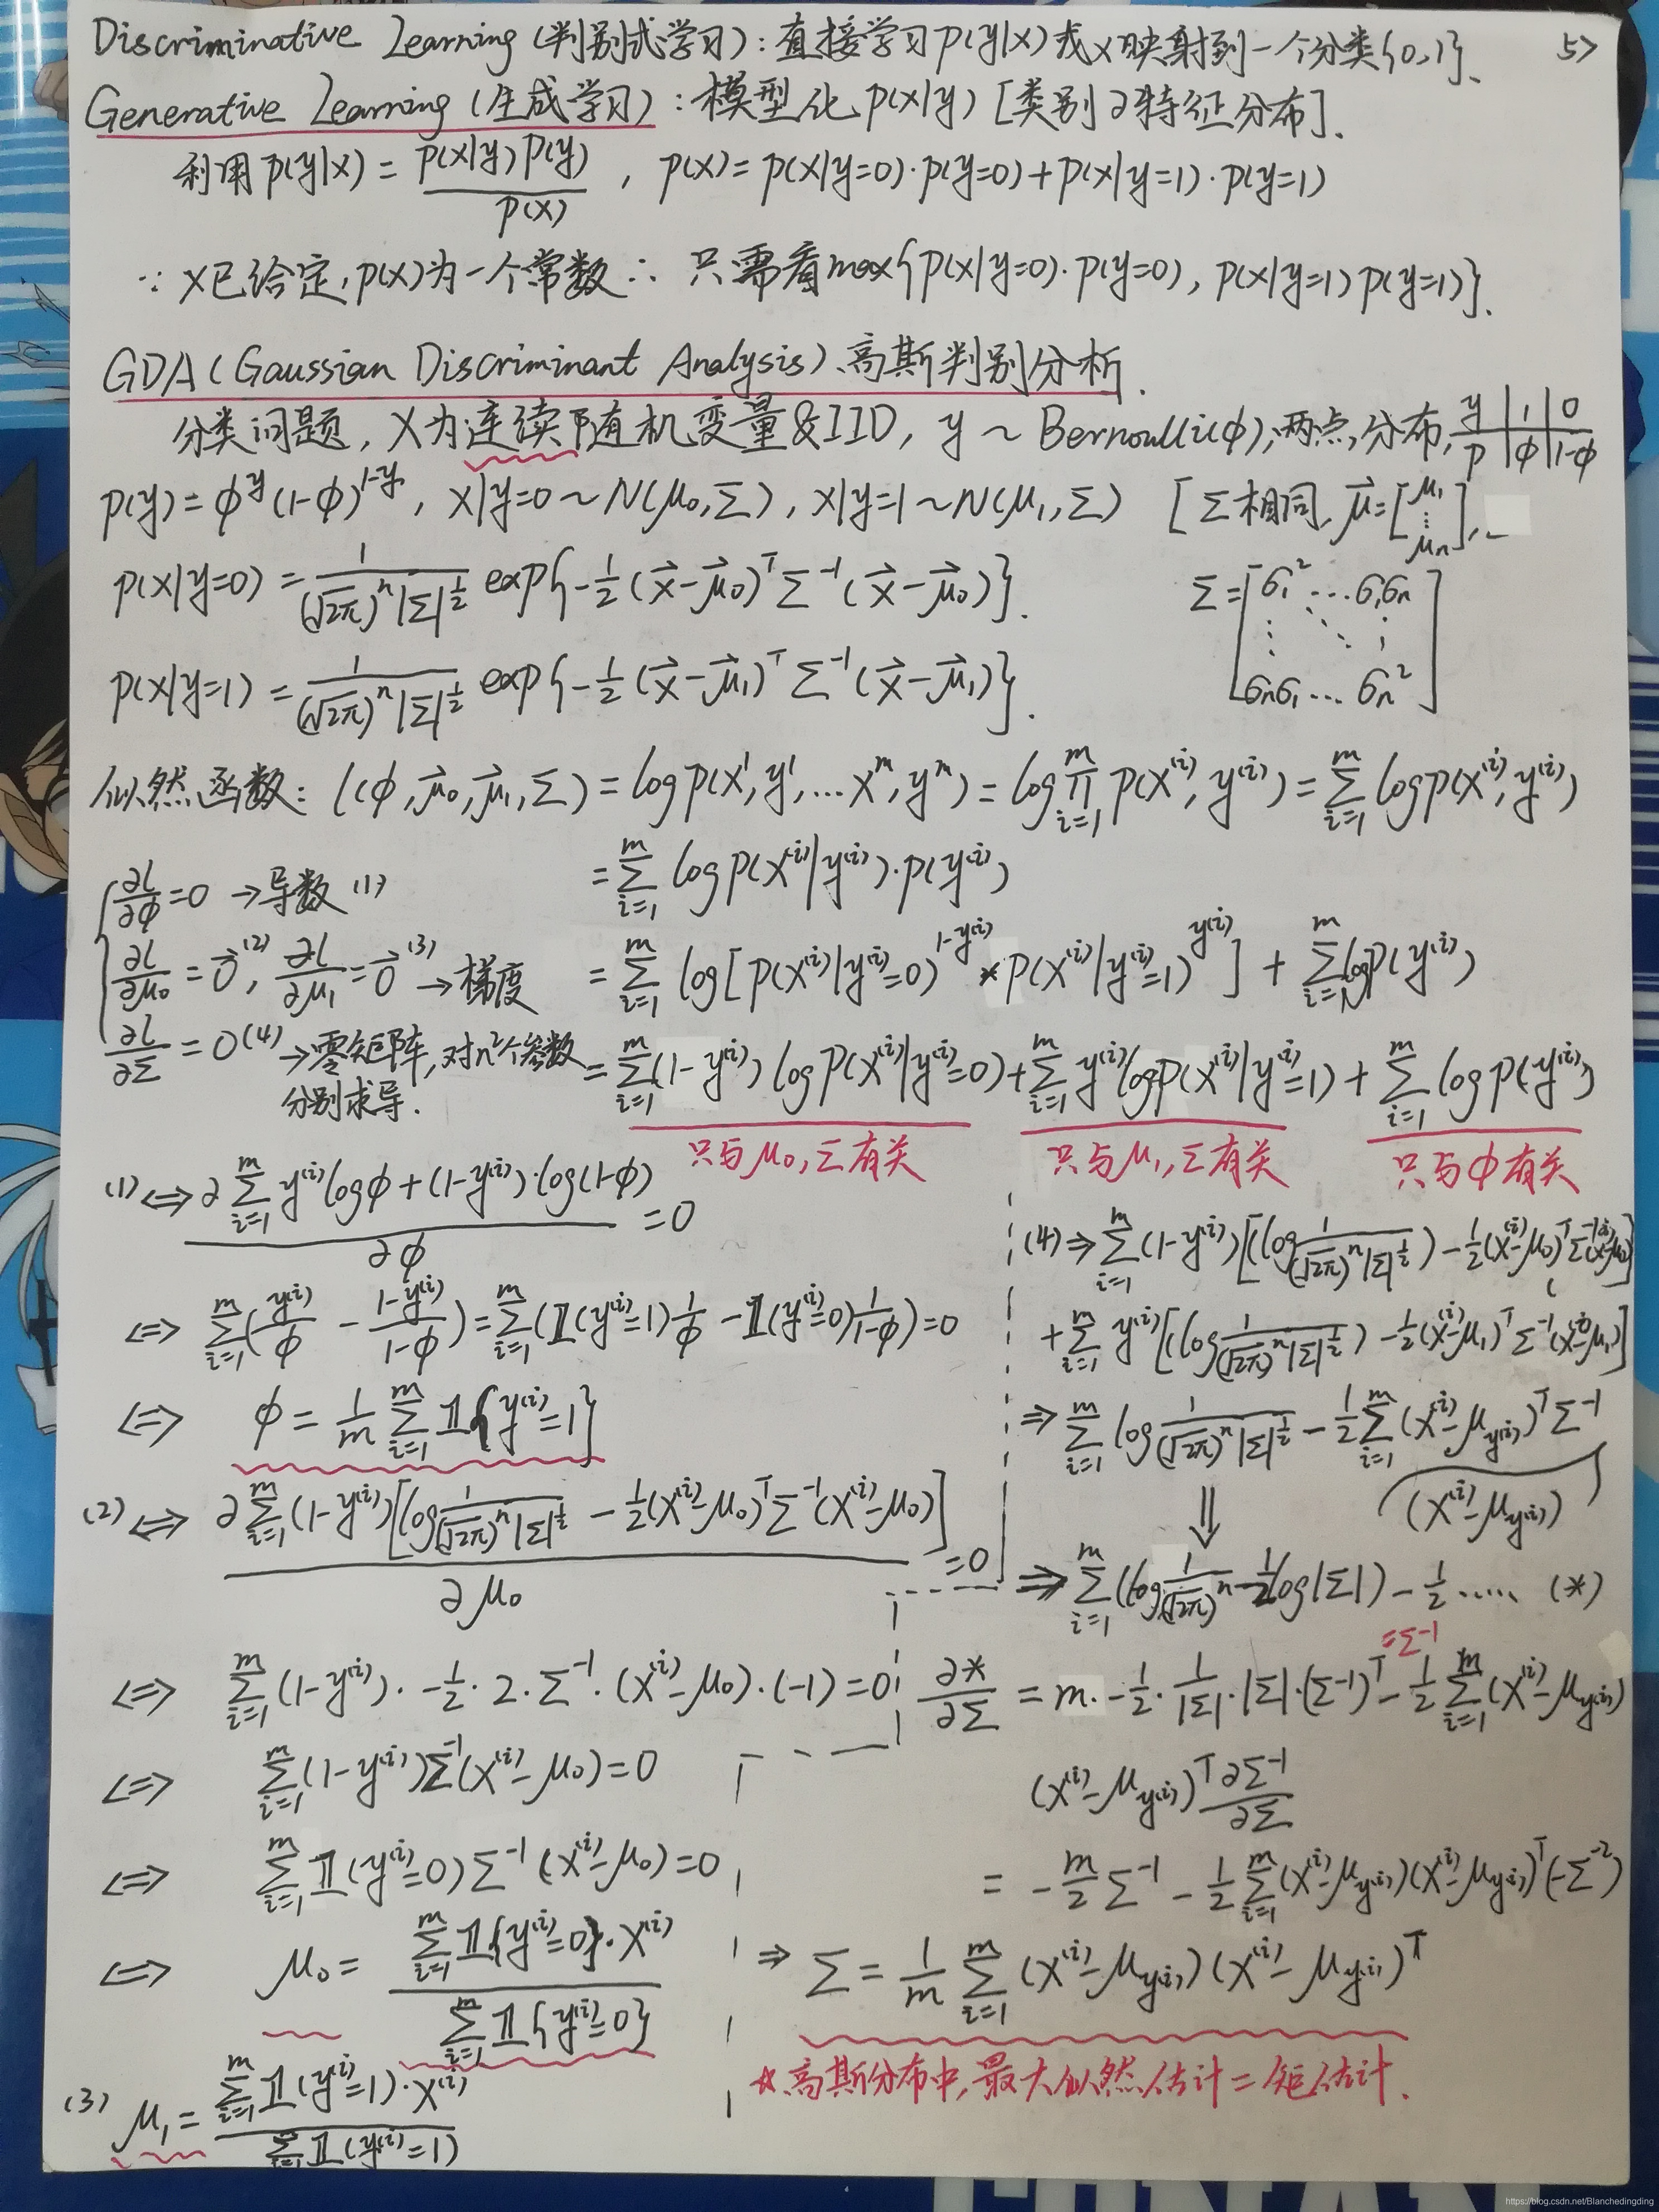 Discriminative Learning (判别式学习): 直接学习 p(y|x) 或 x 映射到一个分类{0,1}、 5>
Generative Learning (生成学习): 模型化 p(x|y) [类别→特征分布].
利用 p(y|x) = p(x|y) p(y) / p(x) , p(x) = p(x|y=0)·p(y=0) + p(x|y=1)·p(y=1)
∵ x已给定, p(x)为一个常数 ∴ 只需看 max{p(x|y=0)·p(y=0), p(x|y=1) p(y=1)}.
GDA (Gaussian Discriminant Analysis)、高斯判别分析.
分类问题, x为连续随机变量 & IID, y ~ Bernoulli(φ), 两点分布, y | 1 | 0
p | φ | 1-φ
p(y) = φ^y (1-φ)^{1-y}, x|y=0 ~ N(μ₀, Σ), x|y=1 ~ N(μ₁, Σ) [Σ相同, μ⃗ = [μ₁ ⋮ μₙ],
p(x|y=0) = 1/((√2π)^n |Σ|^{1/2}) exp{-1/2 (x⃗-μ⃗₀)^T Σ^{-1} (x⃗-μ⃗₀)}.
Σ = [σ₁² … σ₁σₙ ⋮ ⋱ ⋮ σₙσ₁ … σₙ²]
p(x|y=1) = 1/((√2π)^n |Σ|^{1/2}) exp{-1/2 (x⃗-μ⃗₁)^T Σ^{-1} (x⃗-μ⃗₁)}.
似然函数: l(φ, μ⃗₀, μ⃗₁, Σ) = log p(x¹, y¹, … x^m, y^m) = log ∏_{i=1}^m p(x^{(i)}, y^{(i)}) = Σ_{i=1}^m log p(x^{(i)}, y^{(i)})
= Σ_{i=1}^m log p(x^{(i)}|y^{(i)})·p(y^{(i)})
= Σ_{i=1}^m log[p(x^{(i)}|y^{(i)}=0)^{1-y^{(i)}} * p(x^{(i)}|y^{(i)}=1)^{y^{(i)}}] + Σ_{i=1}^m log p(y^{(i)})
= Σ_{i=1}^m (1-y^{(i)}) log p(x^{(i)}|y^{(i)}=0) + Σ_{i=1}^m y^{(i)} log p(x^{(i)}|y^{(i)}=1) + Σ_{i=1}^m log p(y^{(i)})
只与μ₀, Σ有关 只与μ₁, Σ有关 只与φ有关
∂l/∂φ = 0 → 导数 (1)
∂l/∂μ₀ = 0⃗ (2), ∂l/∂μ₁ = 0⃗ (3) → 梯度
∂l/∂Σ = 0 (4) → 零矩阵, 对n²个参数
分别求导.
(1) ⇔ ∂ Σ_{i=1}^m y^{(i)} log φ + (1-y^{(i)})·log(1-φ) / ∂φ = 0
⇔ Σ_{i=1}^m (y^{(i)}/φ - (1-y^{(i)})/(1-φ)) = Σ_{i=1}^m (𝟙(y^{(i)}=1) 1/φ - 𝟙(y^{(i)}=0) 1/(1-φ)) = 0
⇔ φ = 1/m Σ_{i=1}^m 𝟙{y^{(i)}=1}
(2) ⇔ ∂ Σ_{i=1}^m (1-y^{(i)}) [log 1/((√2π)^n |Σ|^{1/2}) - 1/2 (x^{(i)}-μ₀)^T Σ^{-1} (x^{(i)}-μ₀)] / ∂μ₀ = 0
⇔ Σ_{i=1}^m (1-y^{(i)})· -1/2 · 2 · Σ^{-1} · (x^{(i)}-μ₀)·(-1) = 0
⇔ Σ_{i=1}^m (1-y^{(i)}) Σ^{-1} (x^{(i)}-μ₀) = 0
⇔ Σ_{i=1}^m 𝟙(y^{(i)}=0) Σ^{-1} (x^{(i)}-μ₀) = 0
⇔ μ₀ = Σ_{i=1}^m 𝟙{y^{(i)}=0}·x^{(i)} / Σ_{i=1}^m 𝟙{y^{(i)}=0}
(3) μ₁ = Σ_{i=1}^m 𝟙(y^{(i)}=1)·x^{(i)} / Σ_{i=1}^m 𝟙(y^{(i)}=1)
(4) ⇒ Σ_{i=1}^m (1-y^{(i)}) [(log 1/((√2π)^n |Σ|^{1/2})) - 1/2 (x^{(i)}-μ₀)^T Σ^{-1} (x^{(i)}-μ₀)]
+ Σ_{i=1}^m y^{(i)} [(log 1/((√2π)^n |Σ|^{1/2})) - 1/2 (x^{(i)}-μ₁)^T Σ^{-1} (x^{(i)}-μ₁)]
⇒ Σ_{i=1}^m log 1/((√2π)^n |Σ|^{1/2}) - 1/2 Σ_{i=1}^m (x^{(i)}-μ_{y^{(i)}})^T Σ^{-1}
(x^{(i)}-μ_{y^{(i)}})
⇓
⇒ Σ_{i=1}^m (log 1/(√2π)^n - 1/2 log|Σ|) - 1/2 ..... (*)
∂*/∂Σ = m· -1/2 · 1/|Σ| · |Σ|·(Σ^{-1})^T - 1/2 Σ_{i=1}^m (x^{(i)}-μ_{y^{(i)}})
=Σ^{-1}
(x^{(i)}-μ_{y^{(i)}})^T ∂Σ^{-1}/∂Σ
= -m/2 Σ^{-1} - 1/2 Σ_{i=1}^m (x^{(i)}-μ_{y^{(i)}})(x^{(i)}-μ_{y^{(i)}})^T (-Σ^{-2})
⇒ Σ = 1/m Σ_{i=1}^m (x^{(i)}-μ_{y^{(i)}})(x^{(i)}-μ_{y^{(i)}})^T
☆、高斯分布中, 最大似然估计 = 矩估计.
CONAN
https://blog.csdn.net/Blanchedingding